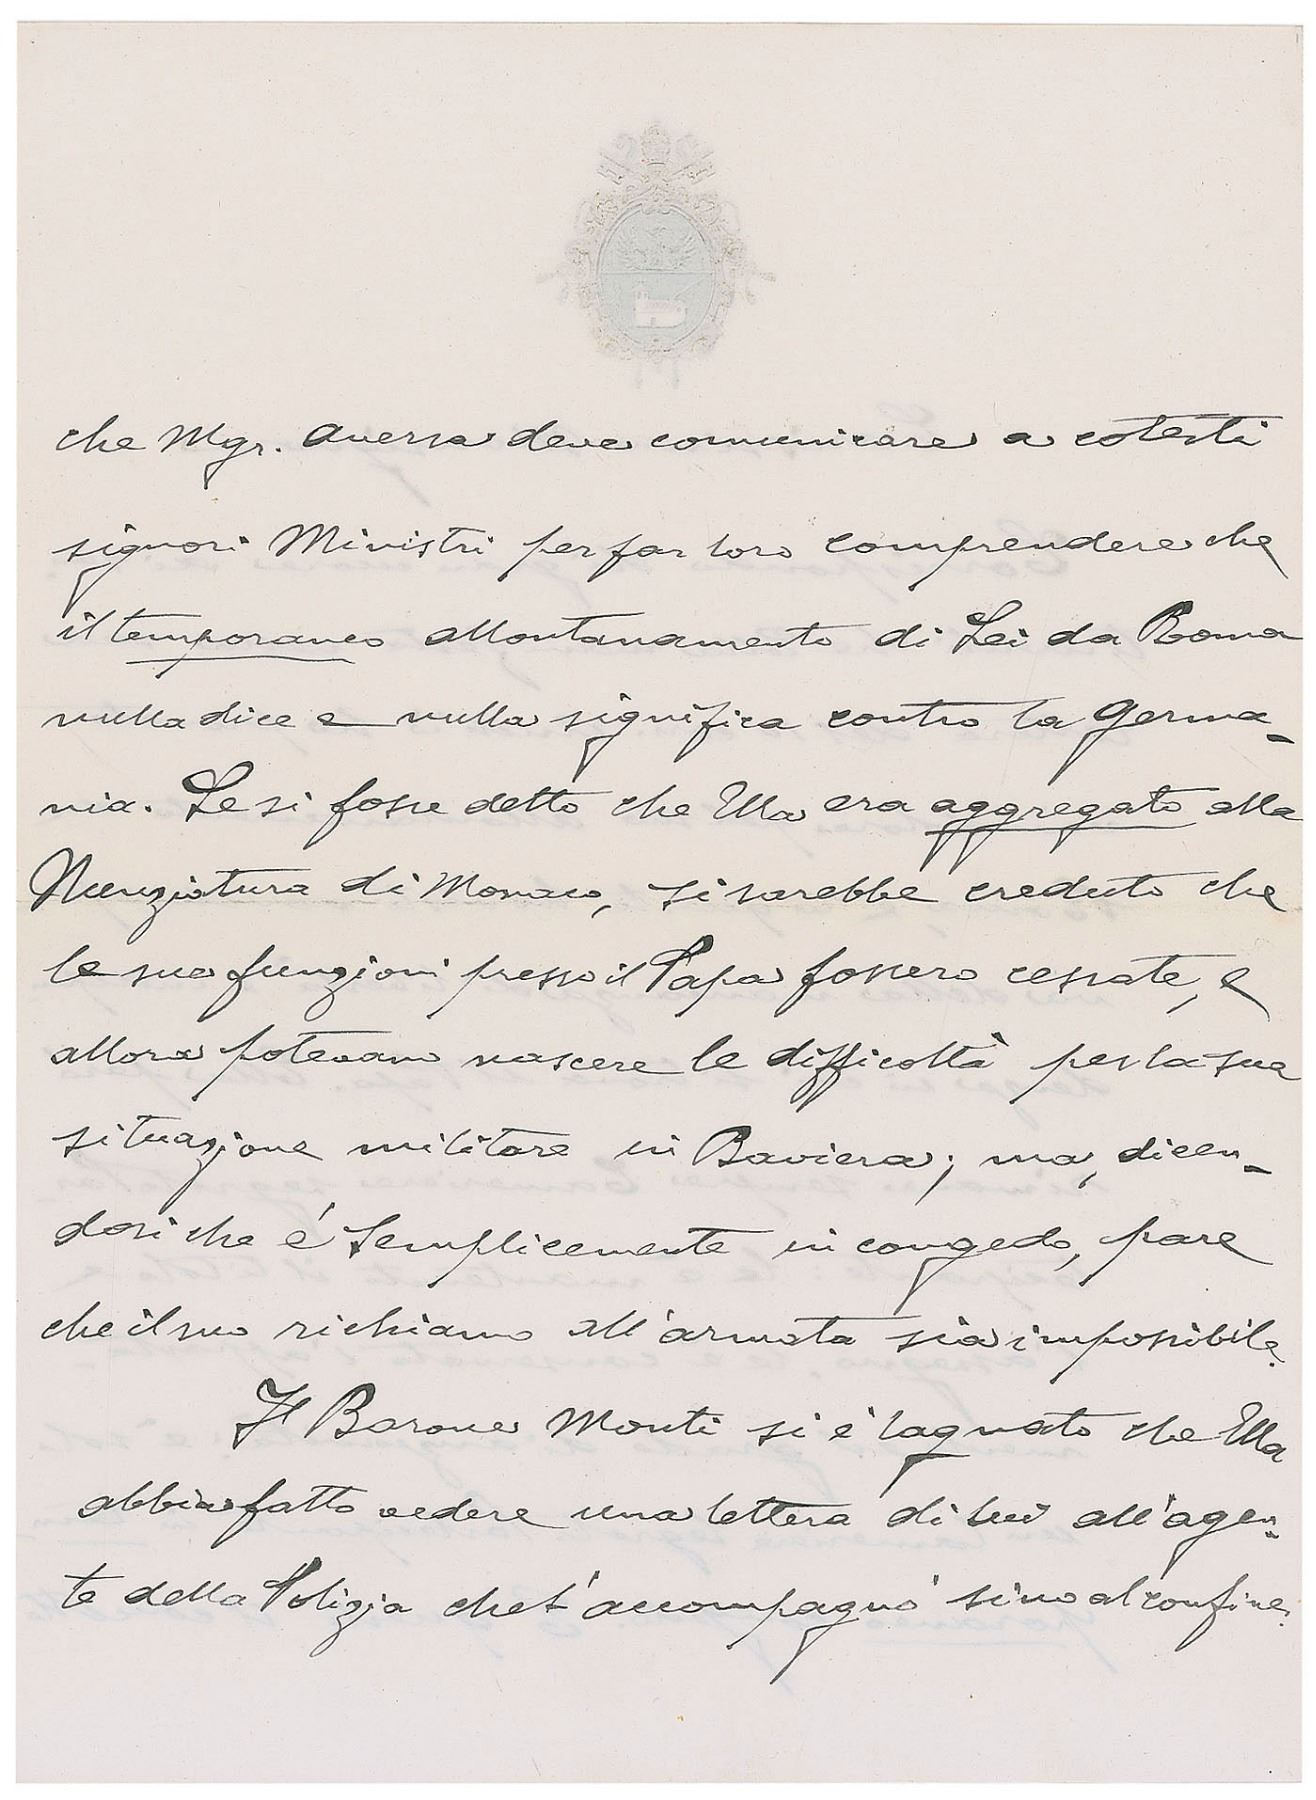 che Mgr. Aversa deve comunicare a cotesti
signori Ministri per far loro comprendere che
il temporaneo allontanamento di Lei da Roma
nulla dice e nulla significa contro la Germa-
nia. Se si fosse detto che Ella era aggregato alla
Nunziatura di Monaco, si sarebbe creduto che
le sue funzioni presso il Papa fossero cessate, e
allora potevano nascere le difficoltà per la sua
situazione militare in Baviera; ma, dicen-
dosi che è semplicemente in congedo, pare
che il suo richiamo all'armata sia impossibile.
Il Barone Monti si è lagnato che Ella
abbia fatto vedere una lettera di lui all'agen-
te della Polizia che L'accompagnò sino al confine.